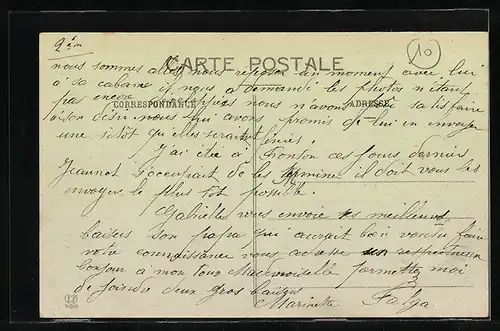 2ème
10
CARTE POSTALE
nous sommes allés nous reposer un moment avec lui
à sa cabane il nous a demandé les photos n'étant
pas encore nous n'avons satisfaire
CORRESPONDANCE ADRESSE
son désir nous lui avons promis de lui en envoyer
une sitôt qu'elles seraient finies.
J'ai été à ces jours derniers
Jeannot s'occupait de les terminer il doit vous les
envoyer le plus tôt possible.
Gabrielle vous envoie ses meilleurs
baisers son papa qui aurait bien voulu faire
votre connaissance vous adresse son respectueux
bonjour à mon tour Mademoiselle permettez moi
de joindre deux gros baisers
Marinette Falga